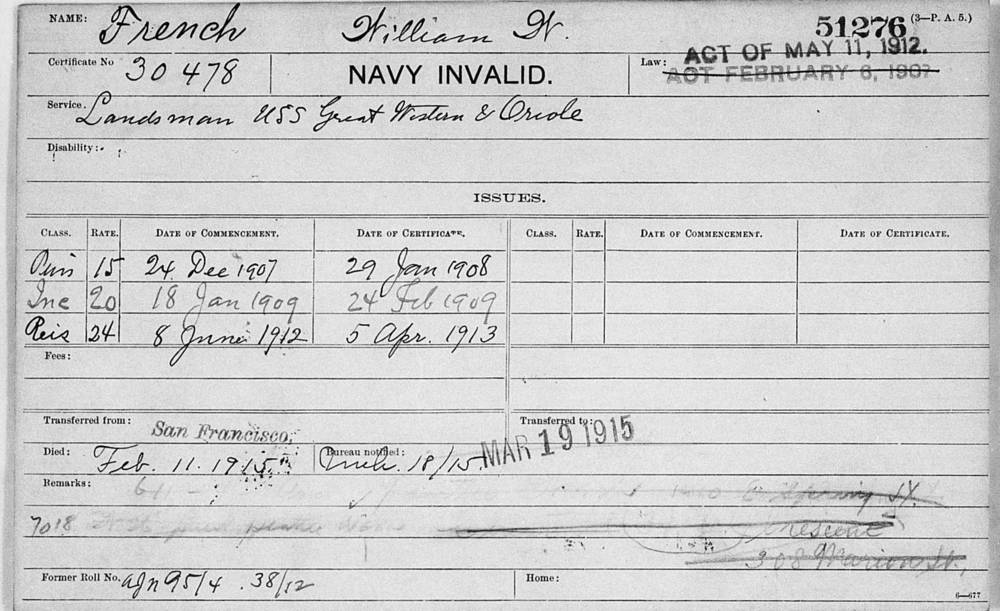 NAME: French William W. 51276 (3—P. A. 5.)
Certificate No 30 478 NAVY INVALID. Law: ACT OF MAY 11, 1912.
ACT FEBRUARY 6, 1907
Service. Landsman USS Great Western & Oriole
Disability:
ISSUES.
CLASS. RATE. DATE OF COMMENCEMENT. DATE OF CERTIFICATE. CLASS. RATE. DATE OF COMMENCEMENT. DATE OF CERTIFICATE.
15 24 Dec 1907 29 Jan 1908
Inc 20 18 Jan 1909 24 Feb 1909
Reis 24 8 June 1912 5 Apr. 1913
Fees:
Transferred from: San Francisco. Transferred to:
Died: Feb. 11. 1915 Bureau notified: Mch. 18/15 MAR 19 1915
Remarks: Spring St.
7018 Crescent
308 Marion St.,
Former Roll No. 95/4 . 38/12 Home:
6—677